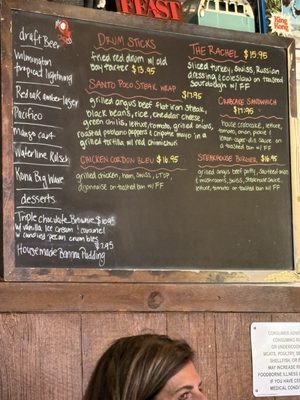 FEAST
draft Beer
wilmington
tropical lightning
Red oak amber-lager
Pacifico
mango cart
Waterline Kolsch
Kona Big Wave
desserts
Triple chocolate Brownie $10.95
w/ vanilla Ice cream & caramel
w candied pecan crumbles
House made Banana Pudding
$7.95
DRUM STICKS
fried red drum w/ old
bay tarter $15.95
SANTO POLO STEAK WRAP
$17.95
grilled angus beef flat iron steak,
black beans, rice, cheddar cheese,
green chilis, lettuce, tomato, grilled onions,
roasted poblano peppers & chipotle mayo in a
grilled tortilla w/ red chimichurri
CHICKEN CORDON BLEU $16.95
grilled chicken, ham, swiss, LTOP,
dijonnaise on toasted bun w/ FF
THE RACHEL $15.95
sliced turkey, swiss, Russian
dressing & coleslaw on toasted
sourdough w/ FF
CRABCAKE SANDWICH
$17.95
house crabcake, lettuce,
tomato, onion, pickle &
lemon caper dill sauce on
a toasted bun w/ FF
STEAKHOUSE BURGER $16.95
grilled angus beef patty, sauteed onion
& mushrooms, swiss, steakhouse sauce,
lettuce, tomato on toasted bun w/ FF
CONSUMER ADVISORY
CONSUMING RAW
OR UNDERCOOKED
MEATS, POULTRY,
SHELLFISH, OR
EGGS MAY INCREASE
FOODBORNE ILLNESS
MEDICAL